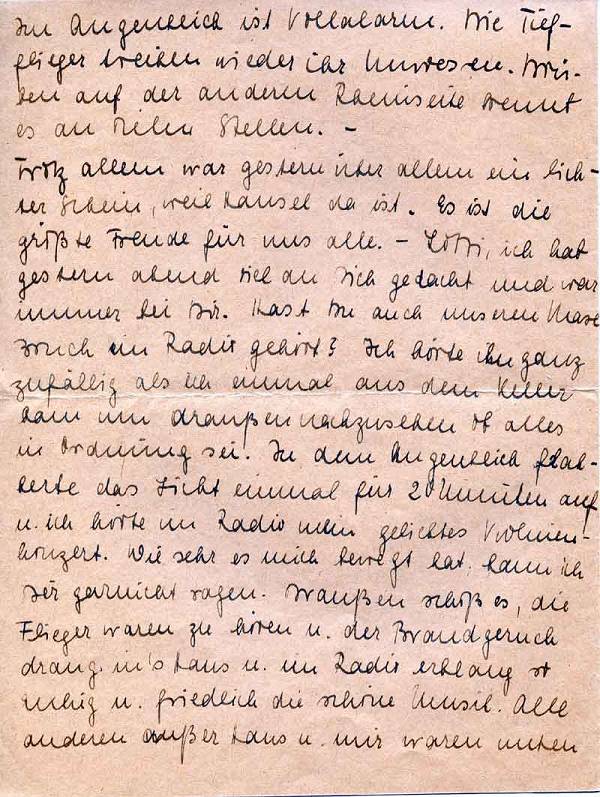 Im Augenblick ist Vollalarm. Die Tief-
flieger treiben wieder ihr Unwesen. Drü-
ben auf der anderen Rheinseite brennt
es an vielen Stellen. –
Trotz allem war gestern über allem ein lich-
ter Schein, weil Hansel da ist. Es ist die
größte Freude für uns alle. – ich hab
gestern abend viel an Dich gedacht und war
immer bei Dir. Hast Du auch unseren Max
Bruch im Radio gehört? Ich hörte ihn ganz
zufällig als ich einmal aus dem Keller
kam um draußen nachzusehen ob alles
in Ordnung sei. In dem Augenblick flak-
kerte das Licht einmal für 20 Minuten auf
u. ich hörte im Radio mein geliebtes Violinen-
konzert. Wie sehr es mich bewegt hat, kann ich
Dir garnicht sagen. Draußen schoß es, die
Flieger waren zu hören u. der Brandgeruch
drang in's Haus u. im Radio erklang so
ruhig u. friedlich die schöne Musik. Alle
anderen außer Hans u. mir waren unten